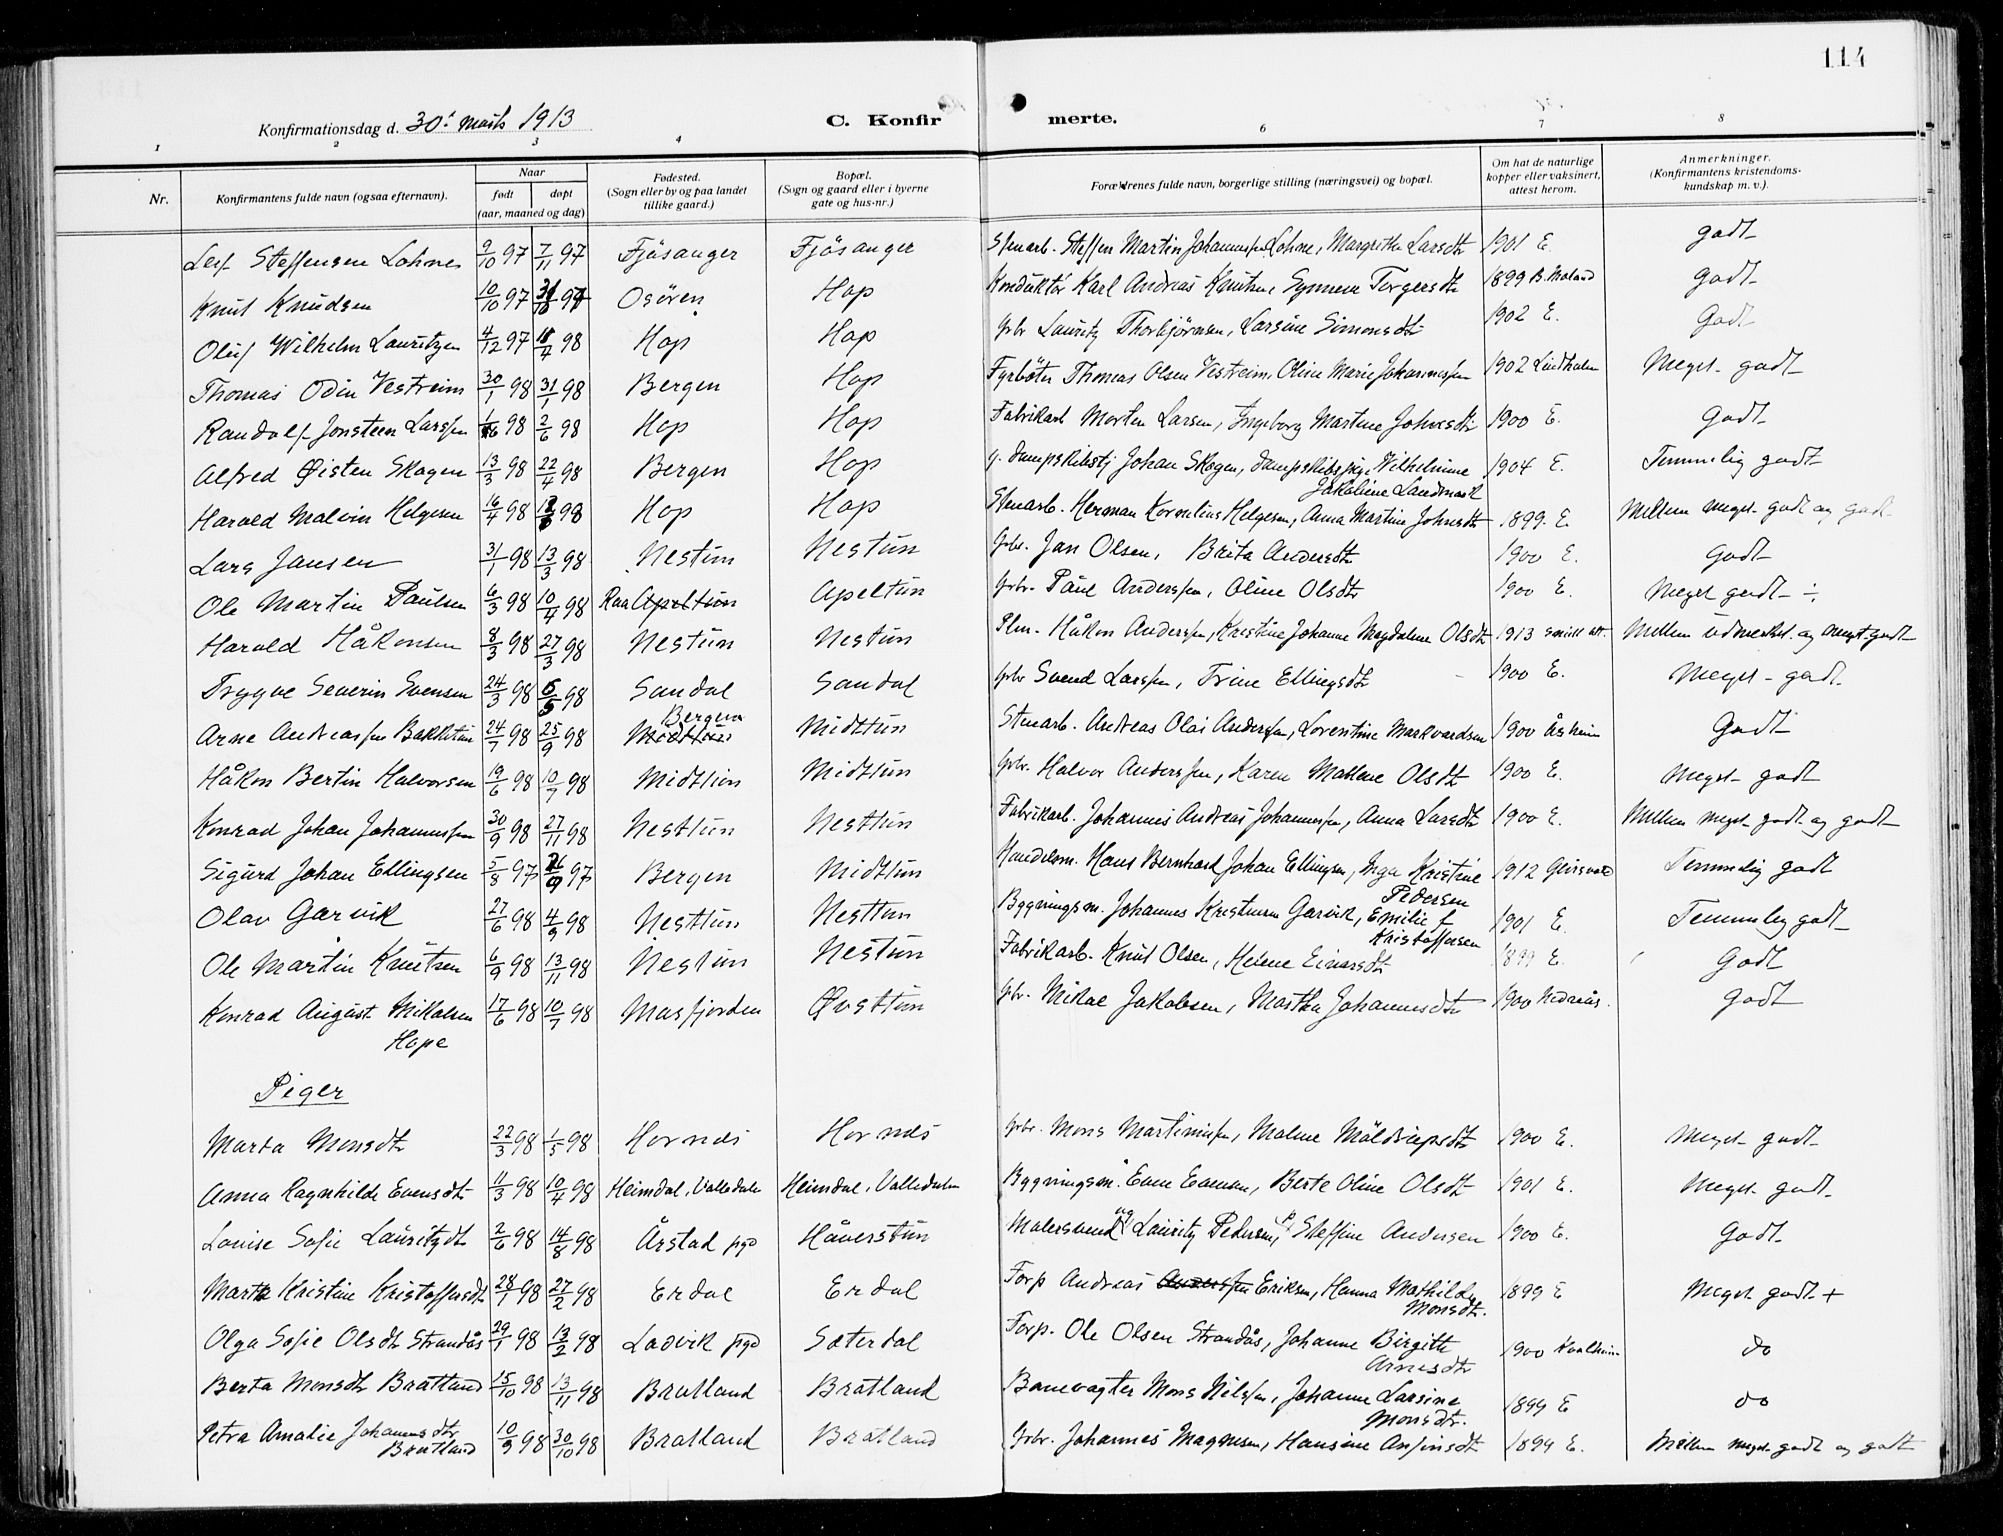 114
Konfirmationsdag d. 30' Marts 1913 C. Konfir merte.
1 2 3 4 6 7 8
Nr. Konfirmantens fulde navn (ogsaa efternavn). Naar født døpt (aar, maaned og dag) Fødested. (Sogn eller by og paa landet tillike gaard.) Bopæl. (Sogn og gaard eller i byerne gate og hus-nr.) Forældrenes fulde navn, borgerlige stilling (næringsvei) og bopæl. Om hat de naturlige kopper eller vaksinert, attest herom. Anmerkninger. (Konfirmantens kristendoms-kundskap m. v.).
Leif Steffensen Lohne 9/10 97 7/11 97 Fjösanger Fjösanger Stenarb. Steffen Martin Johannessen Lohne, Margrethe Larsdtr 1901 E. godt
Knut Knudsen 10/10 97 97 Osören Hop Konduktör Karl Andreas Knutsen, Synneve Torgersdtr 1899 B. Moland godt
Oluf Wilhelm Lauritzen 4/12 97 98 Hop Hop Gbr Lauritz Thorbjörnsen, Larsine Simonsdtr 1902 E. Godt
Thomas Odin Vestreim 30/1 98 31/1 98 Bergen Hop Fyrböter Thomas Olsen Vestreim, Oline Marie Johannessen 1902 Lindholm Meget godt
Randolf Jonsteen Larssen 98 2/6 98 Hop Hop Fabrikarb Morten Larsen, Ingeborg Martine Johnsdtr 1900 E. Godt
Alfred Øisten Skogen 13/3 98 22/4 98 Bergen Hop Johan Skogen, Wilhelmine 1904 E. Temmelig godt
Jakobine Landmark
Harald Malvin Helgesen 16/4 98 98 Hop Hop Stenarb. Herman Kornelius Helgesen, Anna Martine Johnsdtr 1899. E. Mellem meget godt og godt
Lars Jansen 31/1 98 13/3 98 Nestun Nestun Gbr. Jan Olsen, Brita Andersdtr 1900 E. Godt
Ole Martin Paulsen 6/3 98 10/4 98 Raa Apeltun Apeltun Gbr. Paul Anderssen, Oline Olsdtr 1900 E. Meget godt ÷
Harald Håkonsen 8/3 98 27/3 98 Nestun Nestun Plm. Håkon Anderssen, Kristine Johanne Magdalene Olsdtr 1913 Mellem udmerket og meget godt
Trygve Severin Svensen 24/3 98 98 Sandal Sandal Gbr Svend Larssen, Trine Ellingsdtr 1900 E. Meget godt
Bergen
Arne Andreassen Bakketun 24/7 98 25/9 98 Midttun Midttun Stenarb. Andreas Olai Anderssen, Lorentine Markvardsen 1900 Åsheim Godt
Håkon Bertin Halvorsen 19/6 98 10/7 98 Midttun Midttun Gbr. Halvor Anderssen, Karen Malene Olsdtr 1900 E. Meget godt
Konrad Johan Johannessen 30/9 98 27/11 98 Nesttun Nesttun Fabrikarb. Johannes Andreas Johannessen, Anna Larsdtr 1900 E. Mellem meget godt og godt
Sigurd Johan Ellingsen 5/8 97 97 Bergen Midttun Handelsm. Hans Bernhard Johan Ellingsen, Inga Kristine 1912 Temmelig godt
Pedersen
Olav Garvik 27/6 98 4/9 98 Nesttun Nesttun Bygningsm. Johannes Kristensen Garvik, Emilie f 1901 E. Temmelig godt
Kristoffersen
Ole Martin Knutsen 6/9 98 13/11 98 Nestun Nestun Fabrikarb. Knut Olsen, Helene Einarsdtr 1899 E. Godt
Konrad August Mikalsen 17/6 98 10/7 98 Masfjorden Øvsttun Gbr. Mikal Jakobsen, Martha Johannesdtr 1900 Nedreås. Godt
Hope
Piger
Marta Monsdtr 22/3 98 1/5 98 Hornds Hornds Gbr. Mons Martinussen, Malene 1900 E. Meget godt
Anna Ragnhilde Evensdtr 11/3 98 10/4 98 Heimdal, Valledalen Heimdal, Valledalen Bygningsm. Even Evensen, Berte Oline Olsdtr 1901 E. Meget godt
Louise Sofie Lauritzdtr 2/6 98 14/8 98 Årstad pgd Håverstun Malersvend Lauritz Pedersen, Steffine Andersen 1900 E. Godt
Marta Kristine Kristoffersdtr 28/1 98 27/2 98 Erdal Erdal Forp Andreas Anderssen Eriksen, Hanna Mathilde 1899 E Meget godt +
Monsdtr.
Olga Sofie Olsdtr Strandås 29/1 98 13/2 98 Ladvik pgd Sæterdal Forp. Ole Olsen Strandås, Johanne Birgitte 1900 Kvalheim do
Arnesdtr
Berta Monsdtr Bratland 15/10 98 13/11 98 Bratland Bratland Banevagter Mons Nilssen, Johanne Larsine 1899 E do
Monsdtr.
Petra Amalie Johannesdtr 10/9 98 30/10 98 Bratland Bratland Gbr. Johannes Magnesen, Hansine Ansinsdtr 1899 E. Mellem meget godt og godt
Bratland